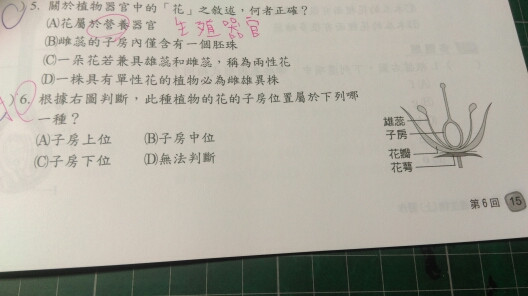 5. 關於植物器官中的「花」之敘述,何者正確?
(A)花屬於營養器官 生殖器官
(B)雌蕊的子房內僅含有一個胚珠
(C)一朵花若兼具雄蕊和雌蕊,稱為兩性花
(D)一株具有單性花的植物必為雌雄異株
)6. 根據右圖判斷,此種植物的花的子房位置屬於下列哪
一種?
(A)子房上位 (B)子房中位
(C)子房下位 (D)無法判斷
雄蕊
子房
花瓣
花萼
第6回 15